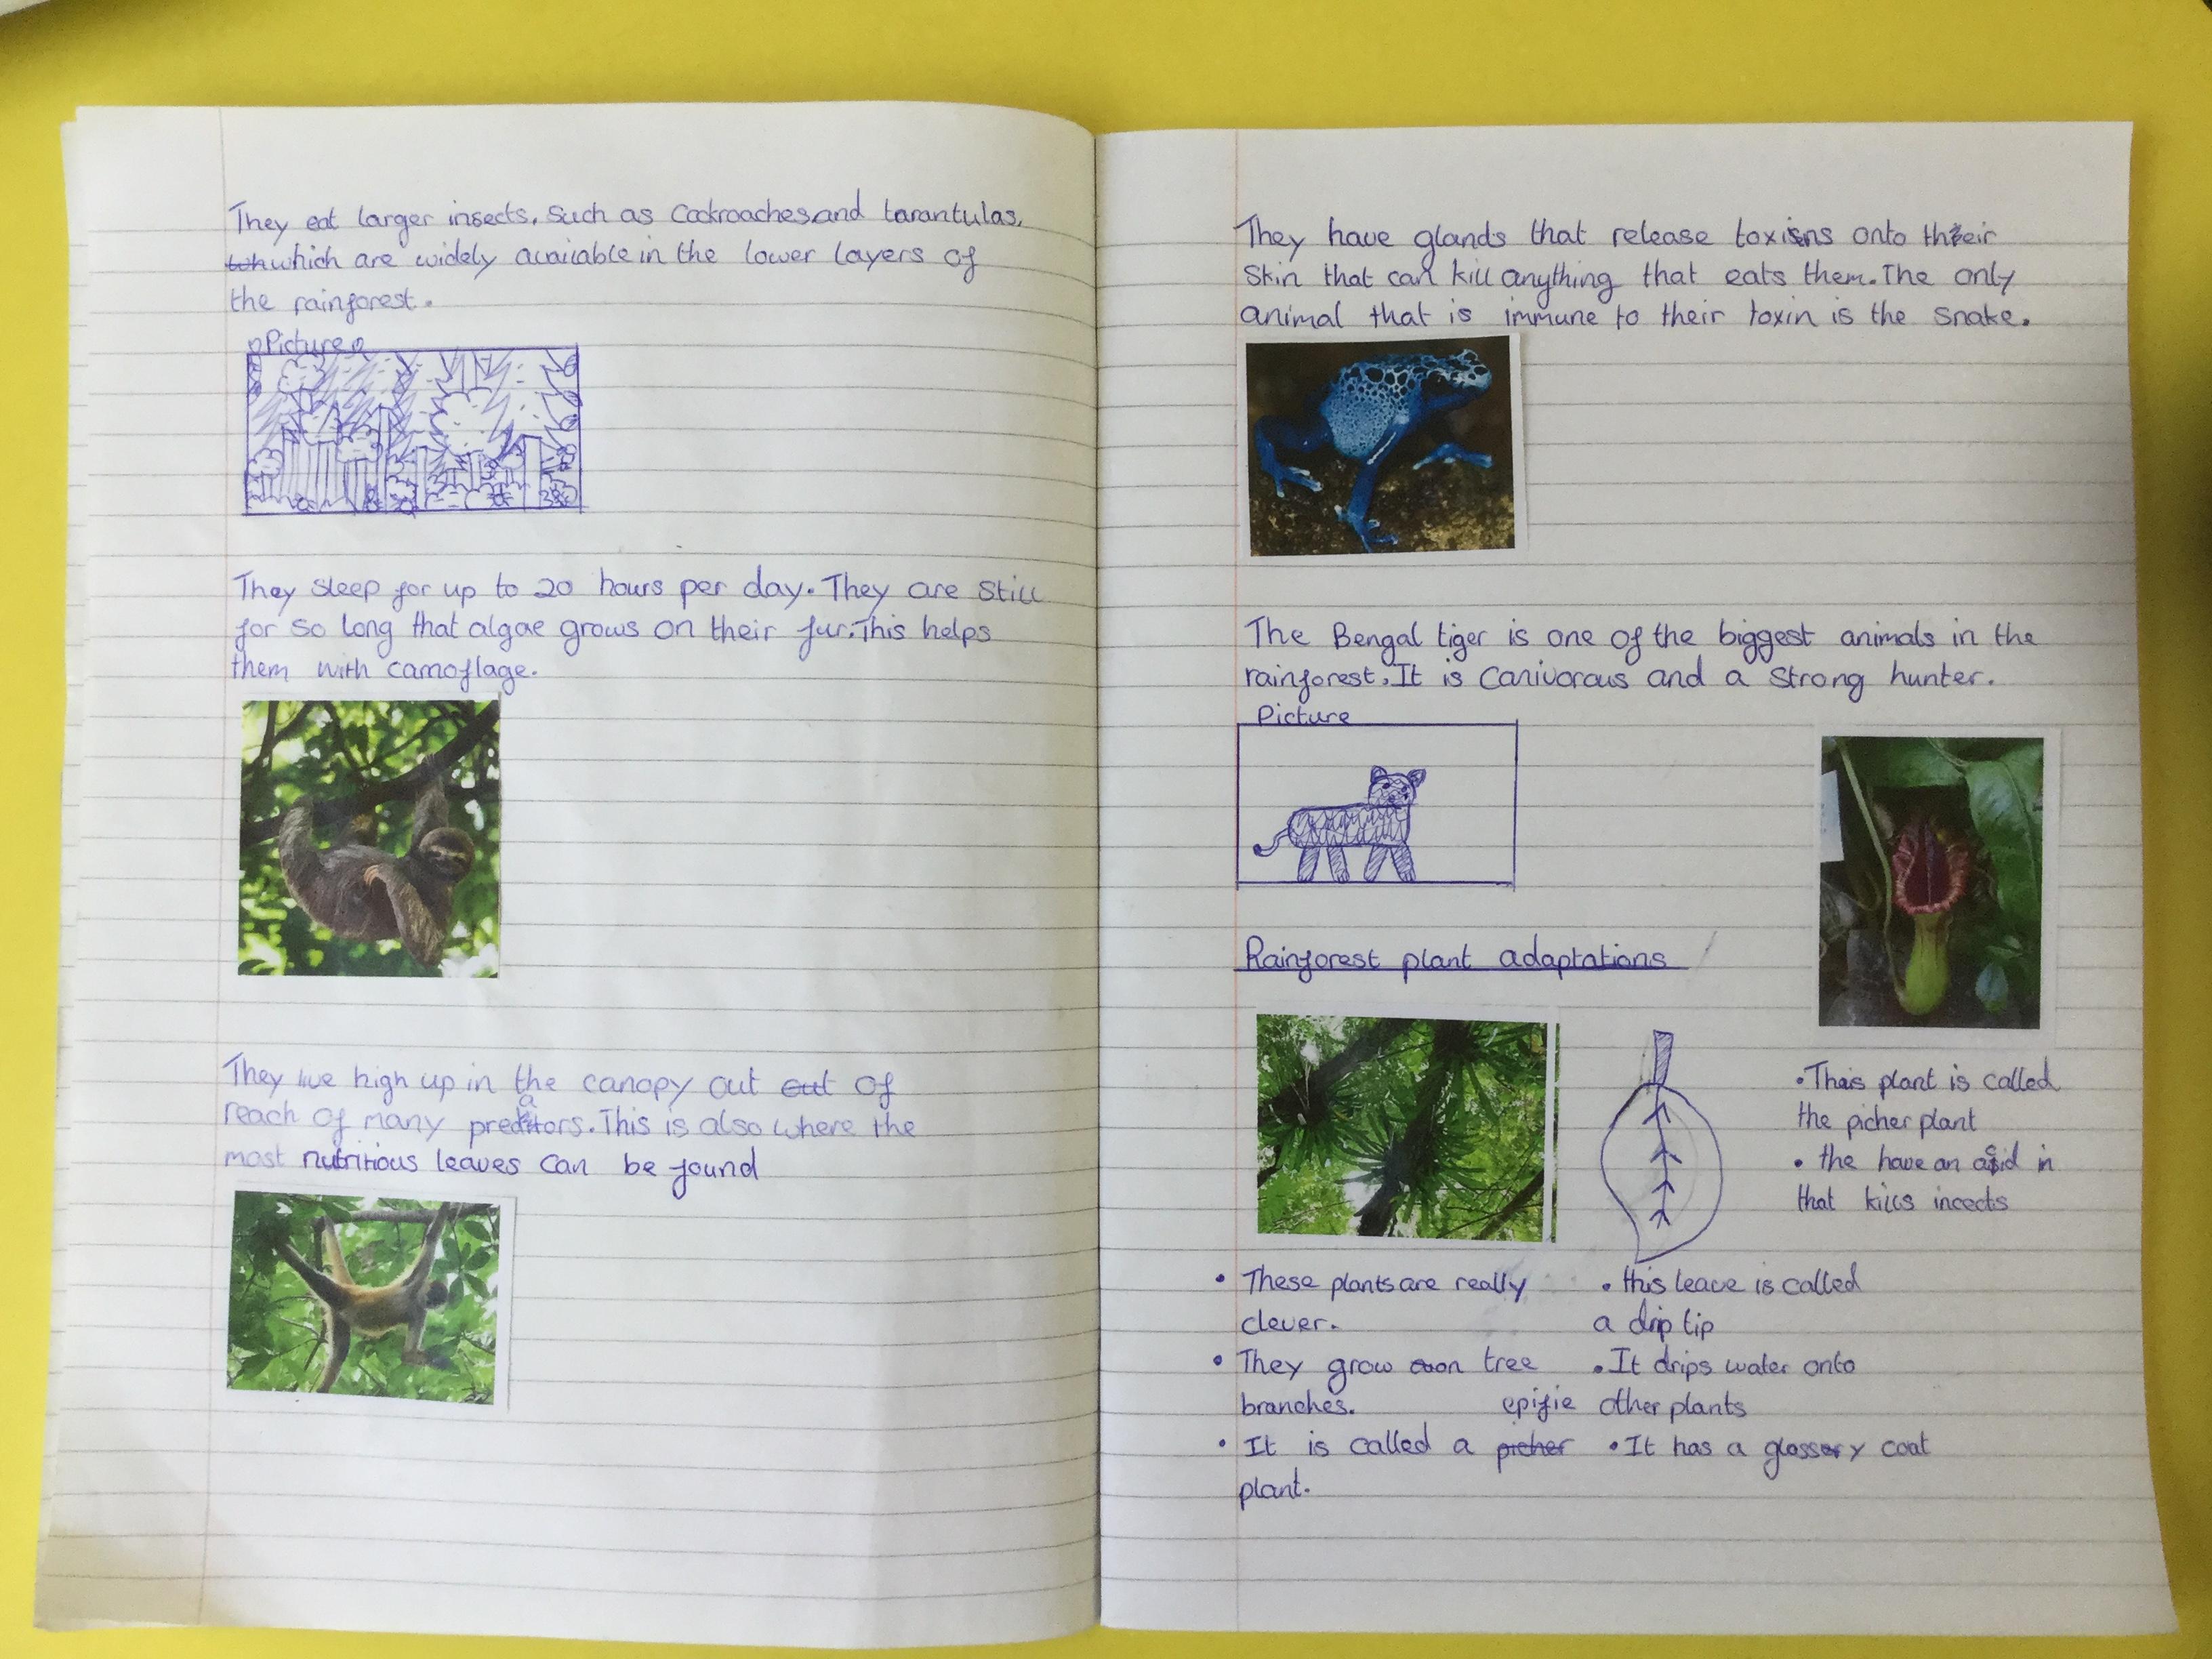 They eat larger insects. Such as Cockroaches and tarantulas.
which are widely available in the lower layers of
the rainforest.
Picture
They sleep for up to 20 hours per day. They are Still
for so long that algae grows on their fur. This helps
them with camoflage.
They live high up in the canopy out out of
reach of many predators. This is also where the
most nutritious leaves can be found
They have glands that release toxins onto their
Skin that can kill anything that eats them. The only
animal that is immune to their toxin is the Snake.
The Bengal tiger is one of the biggest animals in the
rainforest. It is Canivorous and a Strong hunter.
Picture
Rainforest plant adaptations
• This plant is called
the picher plant
• the have an acid in
that kills incects
• These plants are really
clever.
• They grow on tree
branches.
• It is called a picher epifie
plant.
• this leave is called
a drip tip
• It drips water onto
other plants
• It has a glossery coat